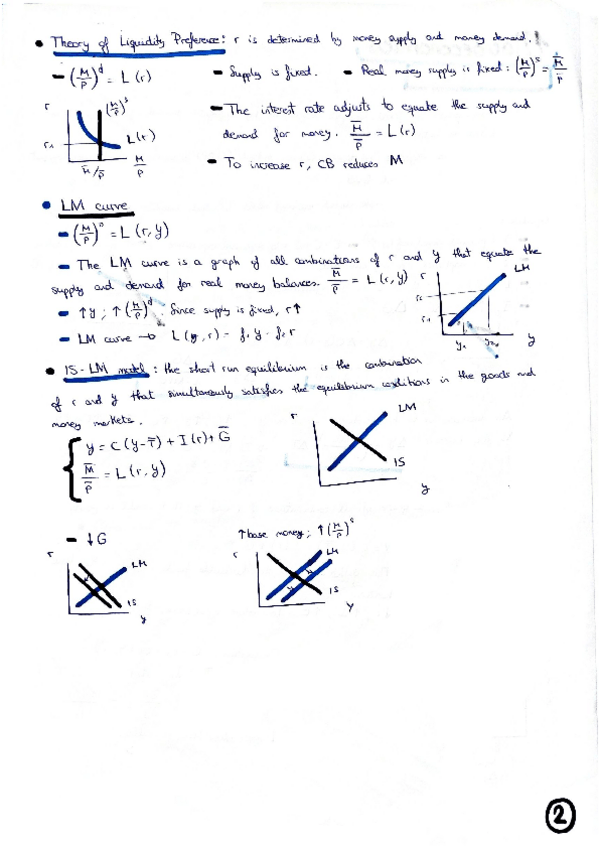 • Theory of Liquidity Preference: r is determined by money supply and money demand.
- (M/P)^d = L(r) - Supply is fixed. - Real money supply is fixed: (M/P)^s = M̅/P̅
r (M/P)^s
- The interest rate adjusts to equate the supply and
r₁ L(r) demand for money. M̅/P̅ = L(r)
M̅/P̅ M/P
- To increase r, CB reduces M
• LM curve
- (M/P)^s = L(r, y)
- The LM curve is a graph of all combinations of r and y that equate the
supply and demand for real money balances. M̅/P̅ = L(r, y) r LM
- ↑y; ↑(M/P)^d. Since supply is fixed, r↑
r₂
r₁
- LM curve → L(y, r) =
y₁ y₂ y
• IS-LM model: the short run equilibrium is the combination
of r and y that simultaneously satisfies the equilibrium conditions in the goods and
money markets.
r LM
{ y = C(y-T̅) + I(r) + G̅
M̅/P̅ = L(r, y)
IS
y
- ↓G ↑base money; ↑(M/P)^s
r LM r LM
IS IS
y y
2